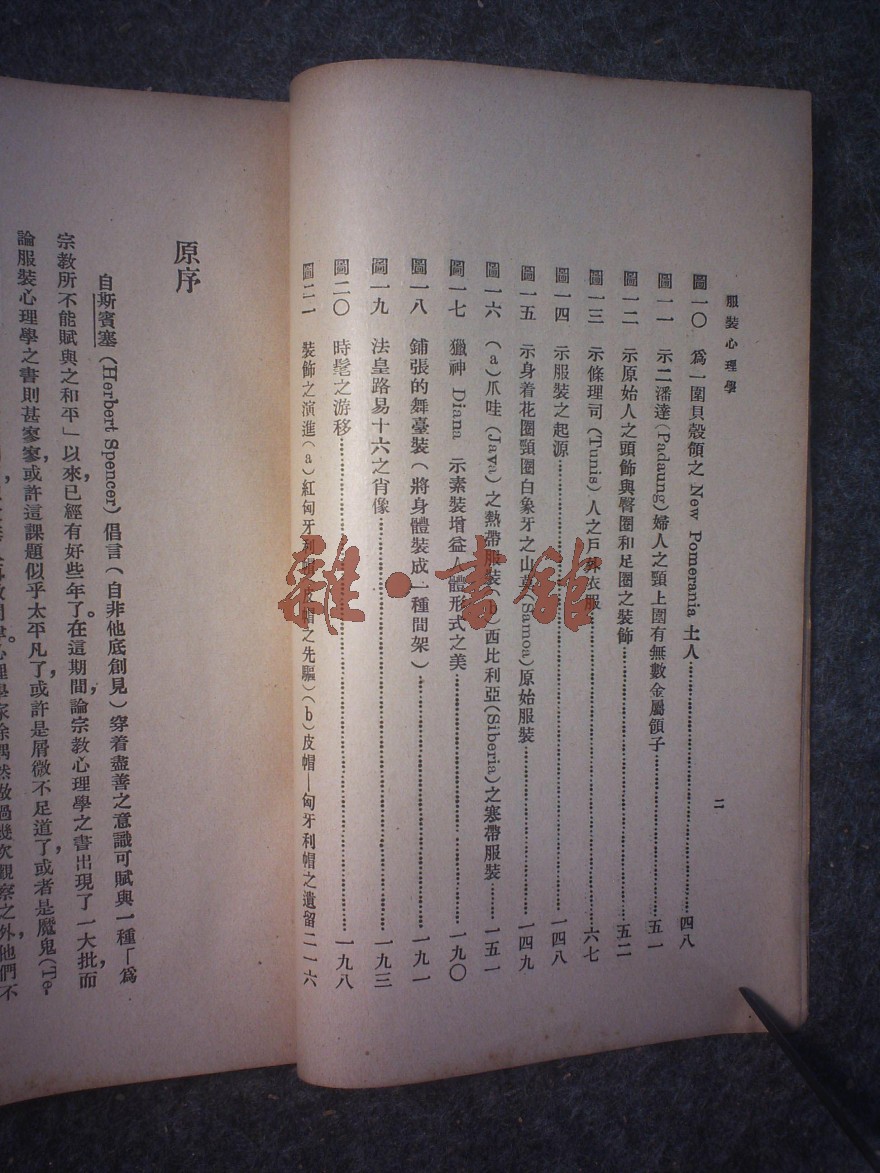 服裝心理學
二
圖一〇 爲一圍貝殼領之 New Pomerania 土人……四八
圖一一 示二潘達(Padaung)婦人之頸上圍有無數金屬領子……五一
圖一二 示原始人之頭飾與臀圈和足圈之裝飾……五二
圖一三 示條理司(Tunis)人之戶外衣服……六七
圖一四 示服裝之起源……一四八
圖一五 示身着花圈頸圈白象牙之山莫(Samoa)原始服裝……一四九
圖一六 (a)爪哇(Java)之熱帶服裝(b)西比利亞(Siberia)之寒帶服裝……一五一
圖一七 獵神 Diana 示素裝增益人體形式之美……一九〇
圖一八 鋪張的舞臺裝(將身體裝成一種間架)……一九一
圖一九 法皇路易十六之肖像……一九三
圖二〇 時髦之游移……一九八
圖二一 裝飾之演進(a)紅匈牙利帽(皮帽之先驅)(b)皮帽—匈牙利帽之遺留二一六
雜·書館
原序
自斯賓塞(Herbert Spencer)倡言(自非他底創見)穿着盡善之意識可賦與一種「爲
宗教所不能賦與之和平」以來,已經有好些年了。在這期間,論宗教心理學之書出現了一大批,而
論服裝心理學之書則甚寥寥,或許這課題似乎太平凡了,或許是屑微不足道了,或者是魔鬼(Te-
理學家除偶然做過幾次觀察之外,他們不